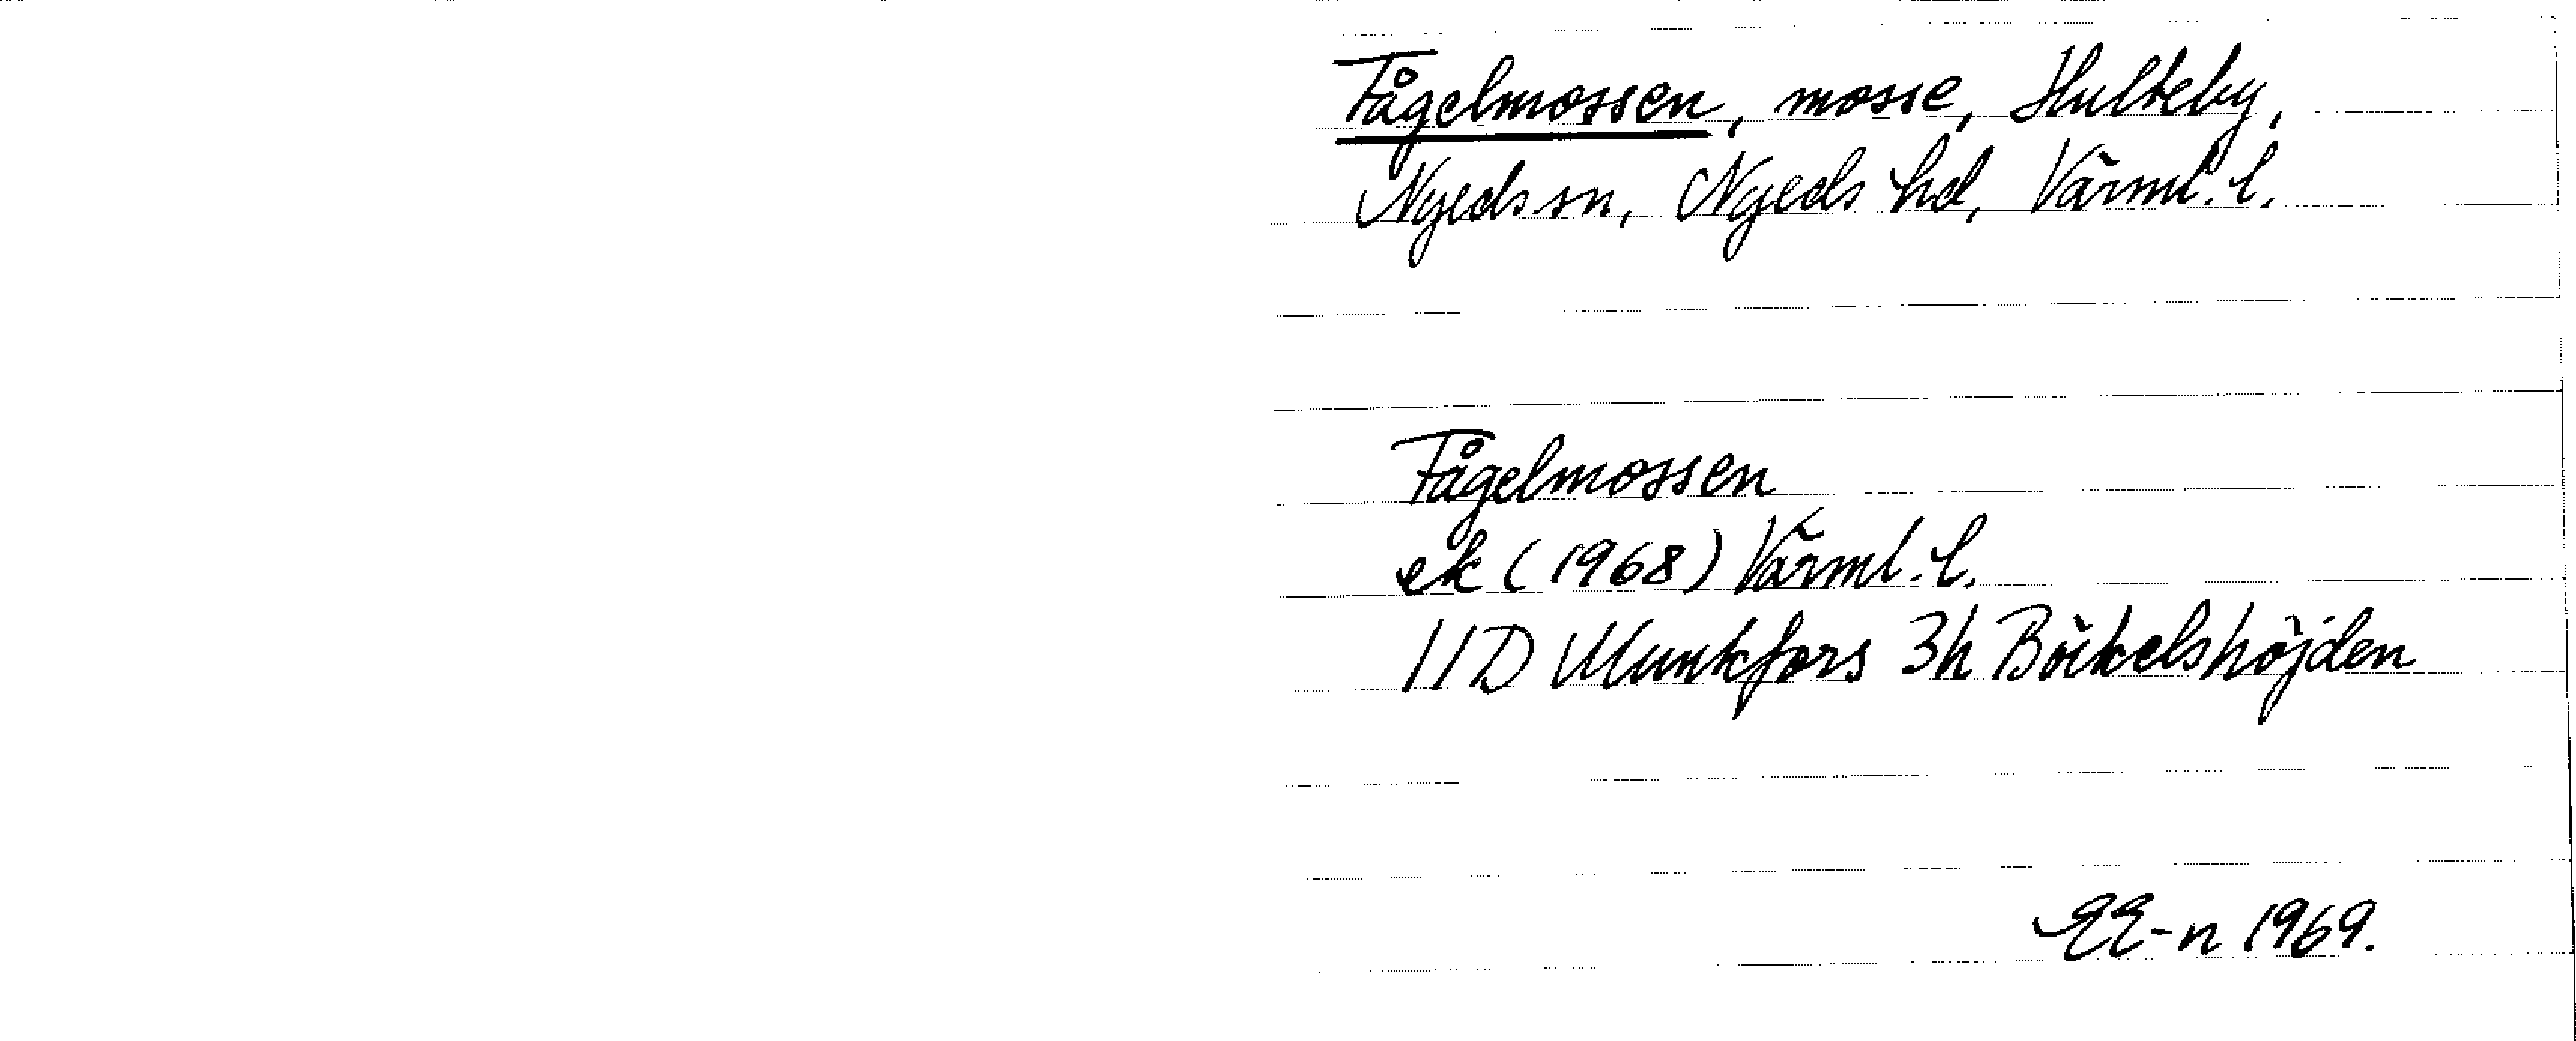 Fågelmossen, mosse, Hulteby,
Nyeds sn, Nyeds hd, Värml. l.
Fågelmossen
ek (1968) Värml. l.
11D Munkfors 3h Bökelshöjden
EE-n 1969.